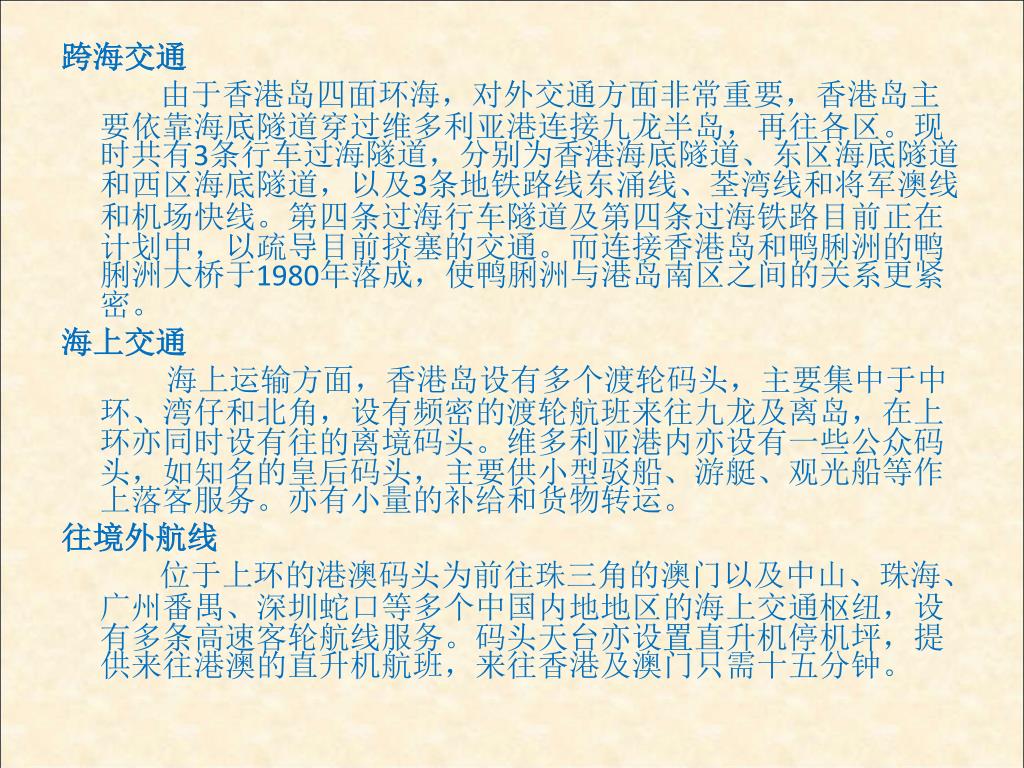 跨海交通
由于香港岛四面环海，对外交通方面非常重要，香港岛主
要依靠海底隧道穿过维多利亚港连接九龙半岛，再往各区。现
时共有3条行车过海隧道，分别为香港海底隧道、东区海底隧道
和西区海底隧道，以及3条地铁路线东涌线、荃湾线和将军澳线
和机场快线。第四条过海行车隧道及第四条过海铁路目前正在
计划中，以疏导目前挤塞的交通。而连接香港岛和鸭脷洲的鸭
脷洲大桥于1980年落成，使鸭脷洲与港岛南区之间的关系更紧
密。
海上交通
海上运输方面，香港岛设有多个渡轮码头，主要集中于中
环、湾仔和北角，设有频密的渡轮航班来往九龙及离岛，在上
环亦同时设有往的离境码头。维多利亚港内亦设有一些公众码
头，如知名的皇后码头，主要供小型驳船、游艇、观光船等作
上落客服务。亦有小量的补给和货物转运。
往境外航线
位于上环的港澳码头为前往珠三角的澳门以及中山、珠海、
广州番禺、深圳蛇口等多个中国内地地区的海上交通枢纽，设
有多条高速客轮航线服务。码头天台亦设置直升机停机坪，提
供来往港澳的直升机航班，来往香港及澳门只需十五分钟。